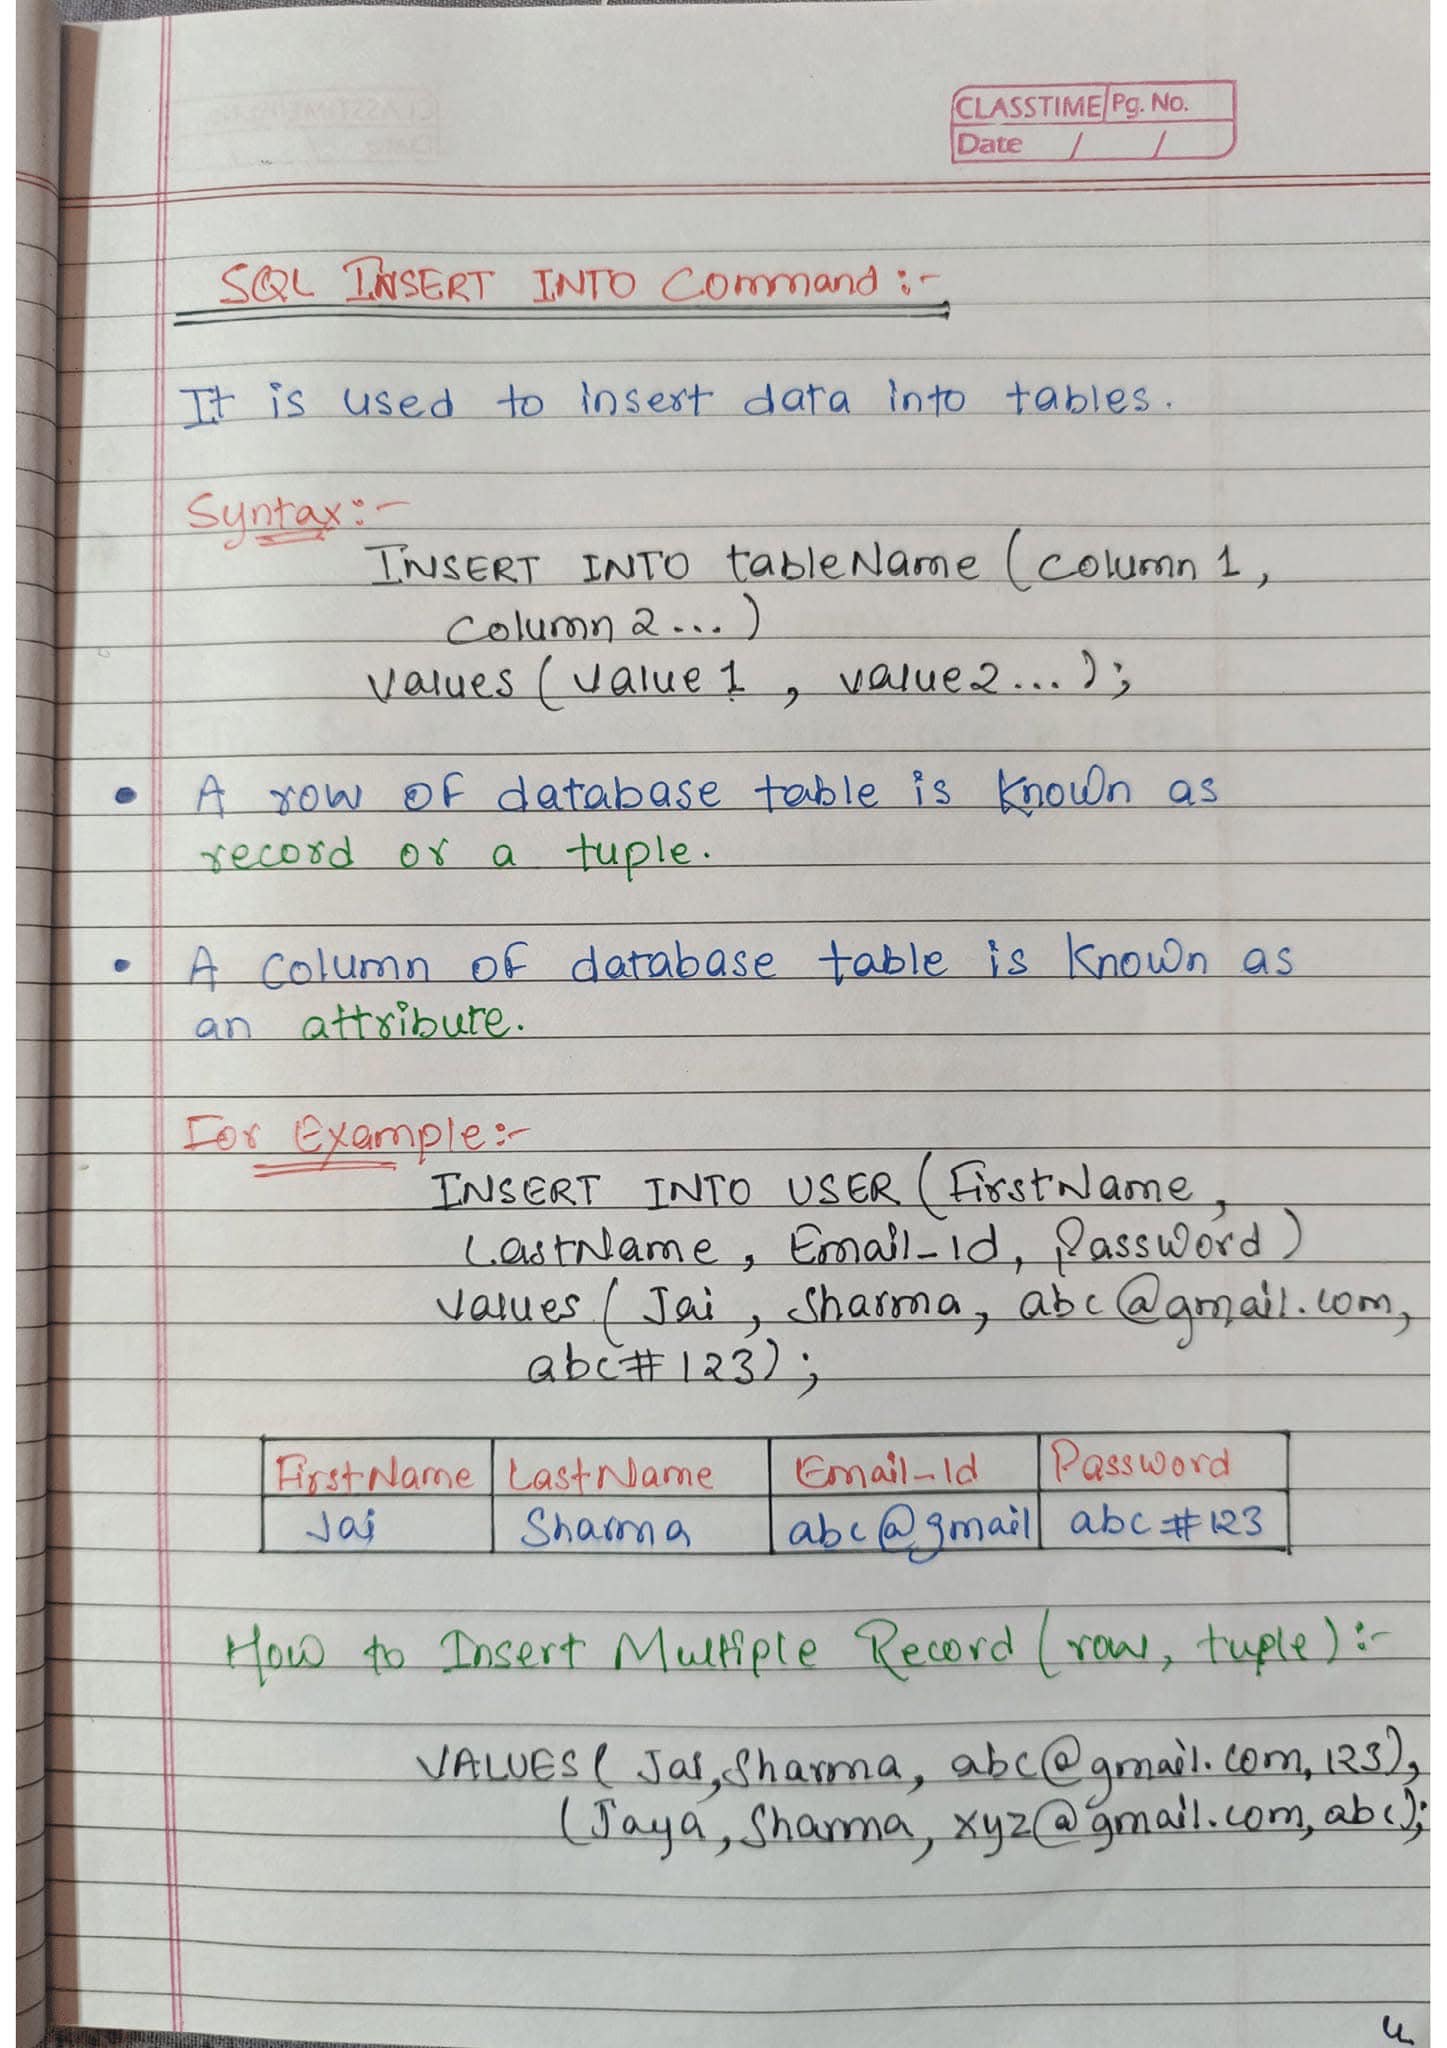 CLASSTIME Pg. No.
Date / /
SQL INSERT INTO Command :-
It is used to insert data into tables.
Syntax :-
INSERT INTO tableName (column 1,
column 2 ... )
values ( value 1 , value 2 ... );
• A row of database table is known as
record or a tuple.
• A column of database table is known as
an attribute.
For Example :-
INSERT INTO USER ( FirstName,
LastName , Email_Id, Password )
values ( Jai , Sharma, abc@gmail.com,
abc#123) ;
FirstName LastName Email_Id Password
Jai Sharma abc@gmail abc#123
How to Insert Multiple Record ( row, tuple ) :-
VALUES ( Jai, Sharma, abc@gmail.com, 123),
(Jaya, Sharma, xyz@gmail.com, abc);